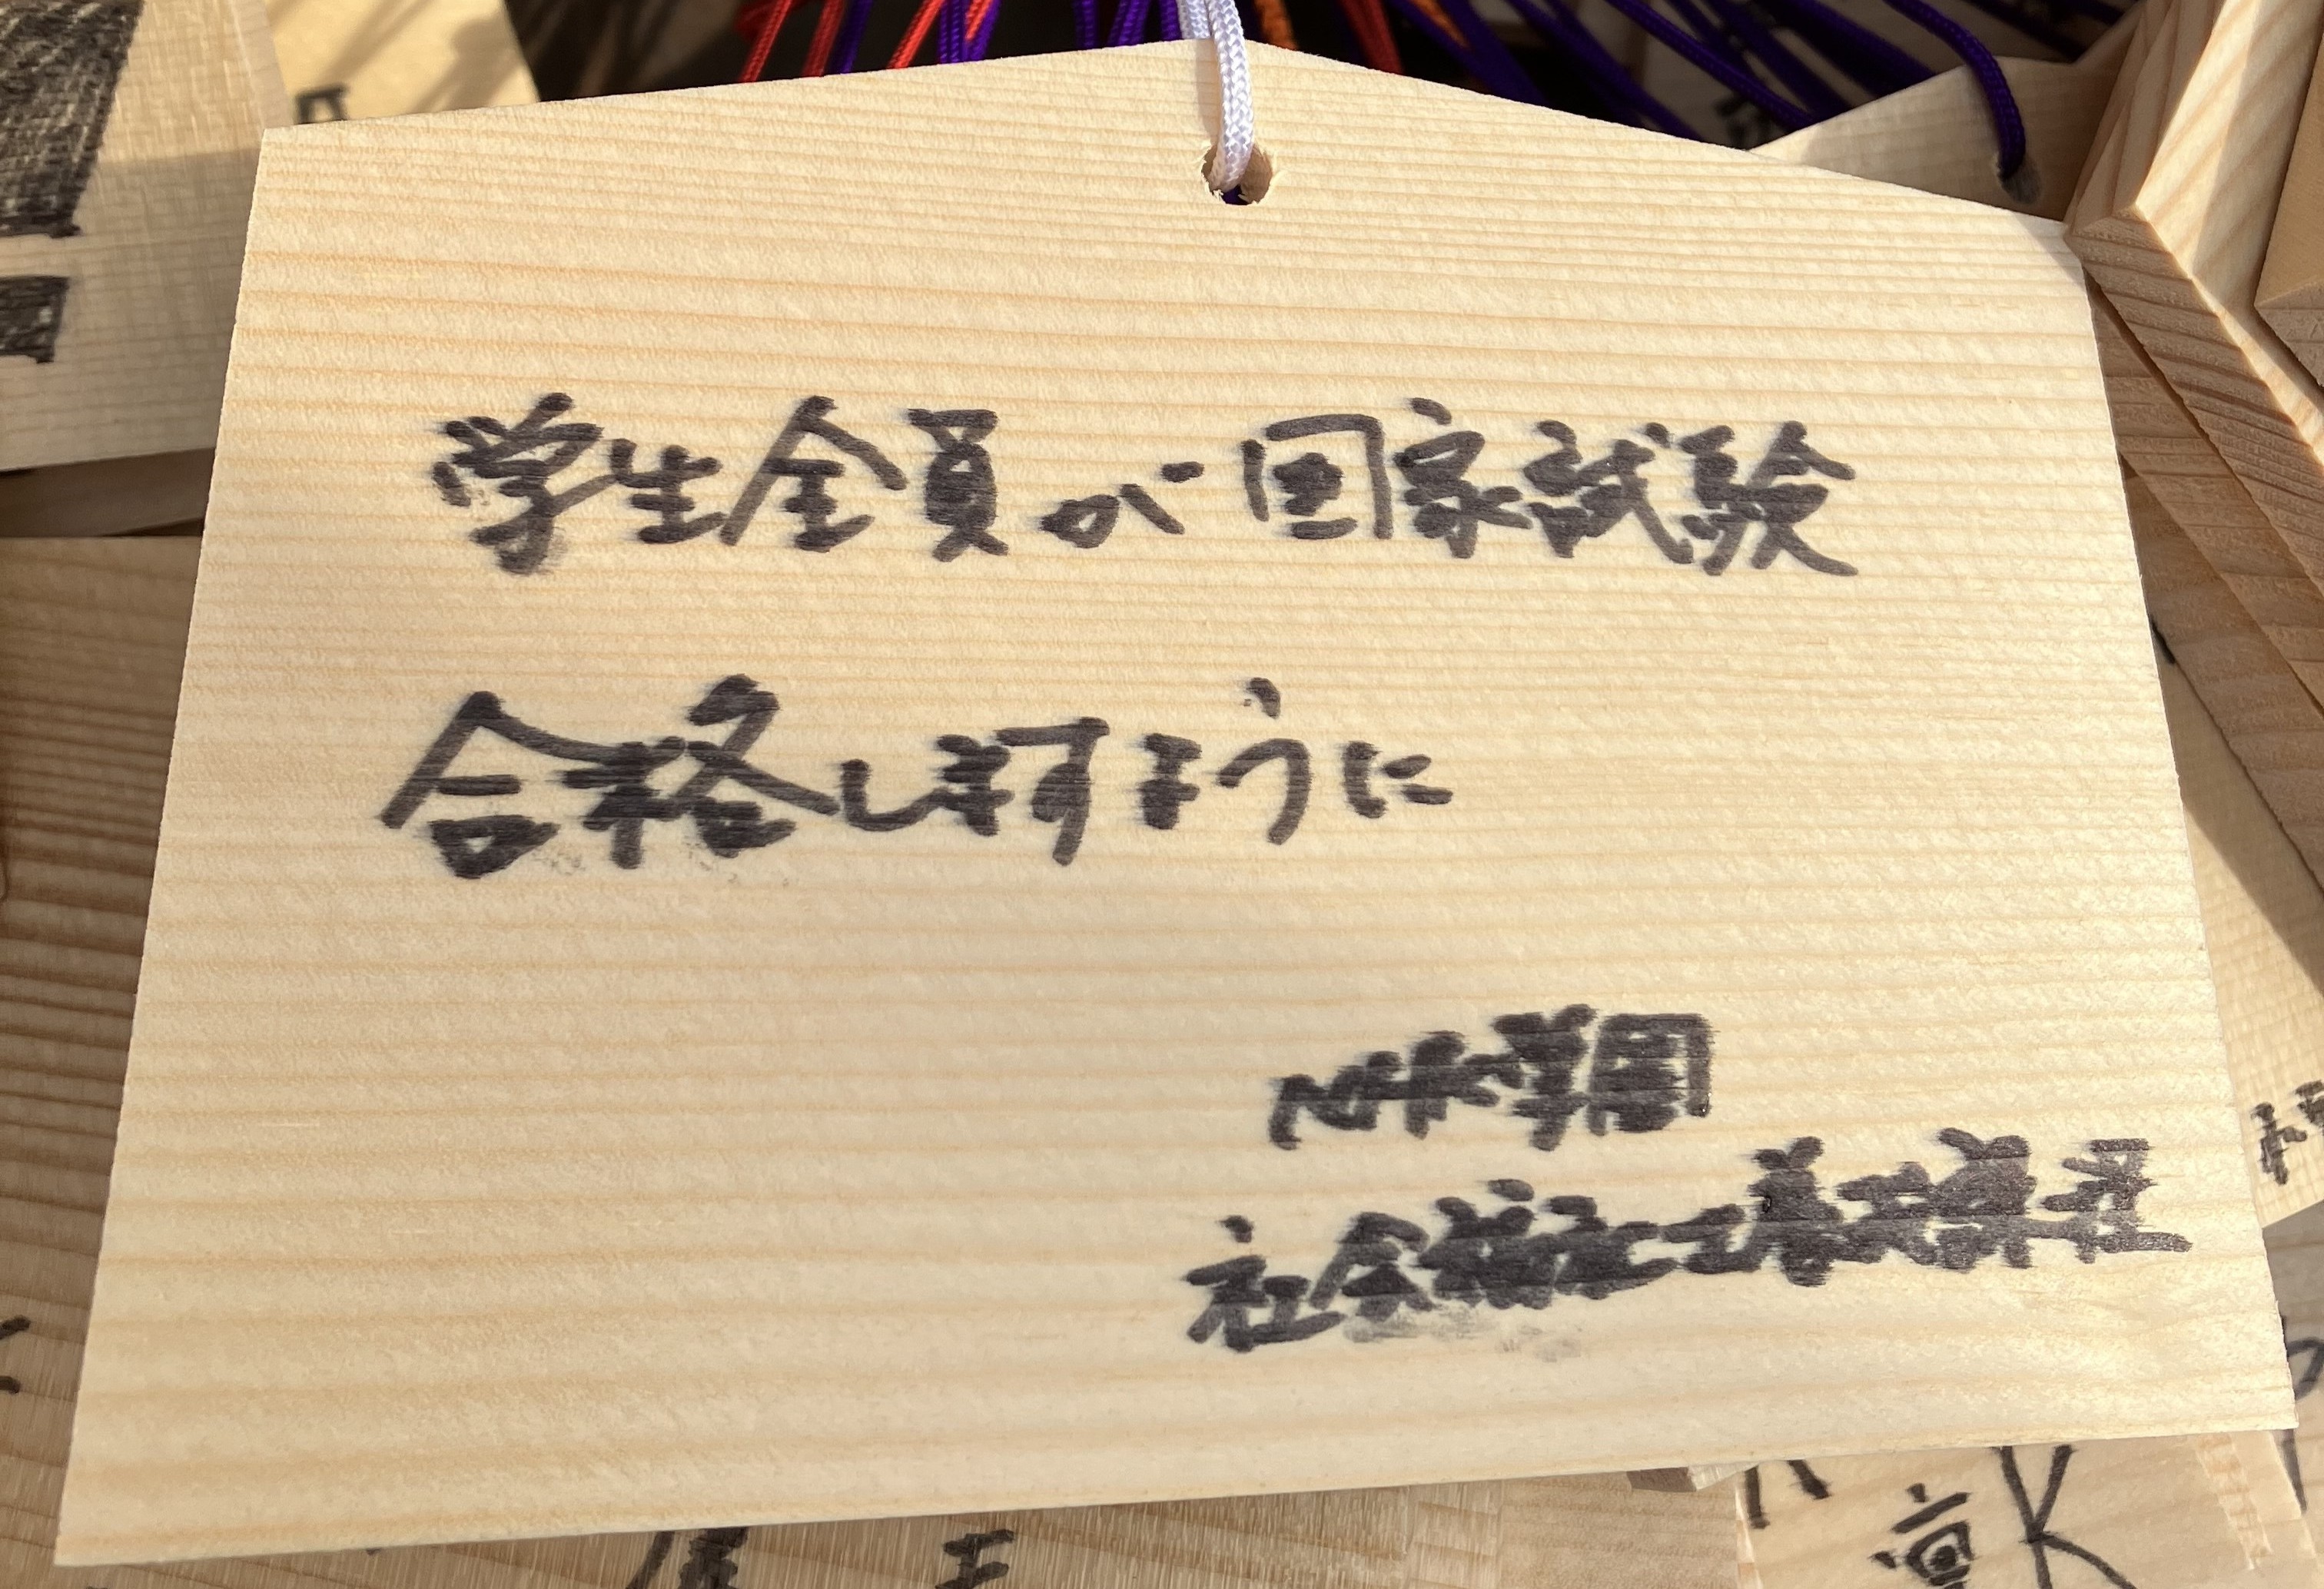 学生全員が国家試験
合格しますように
NHK学園
社会福祉士養成課程